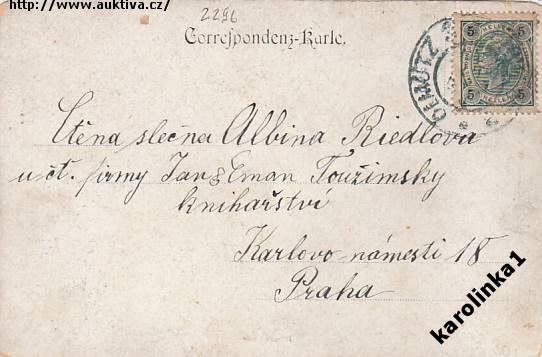 http://www.auktiva.cz/
2296
Correspondenz-Karte.
OLMÜTZ
5 5
5 5
Ctěná slečna Albina Riedlova
učt. firmy Jan & Eman Toužimsky
knihařství
Karlovo-náměsti 18
Praha
karolinka1